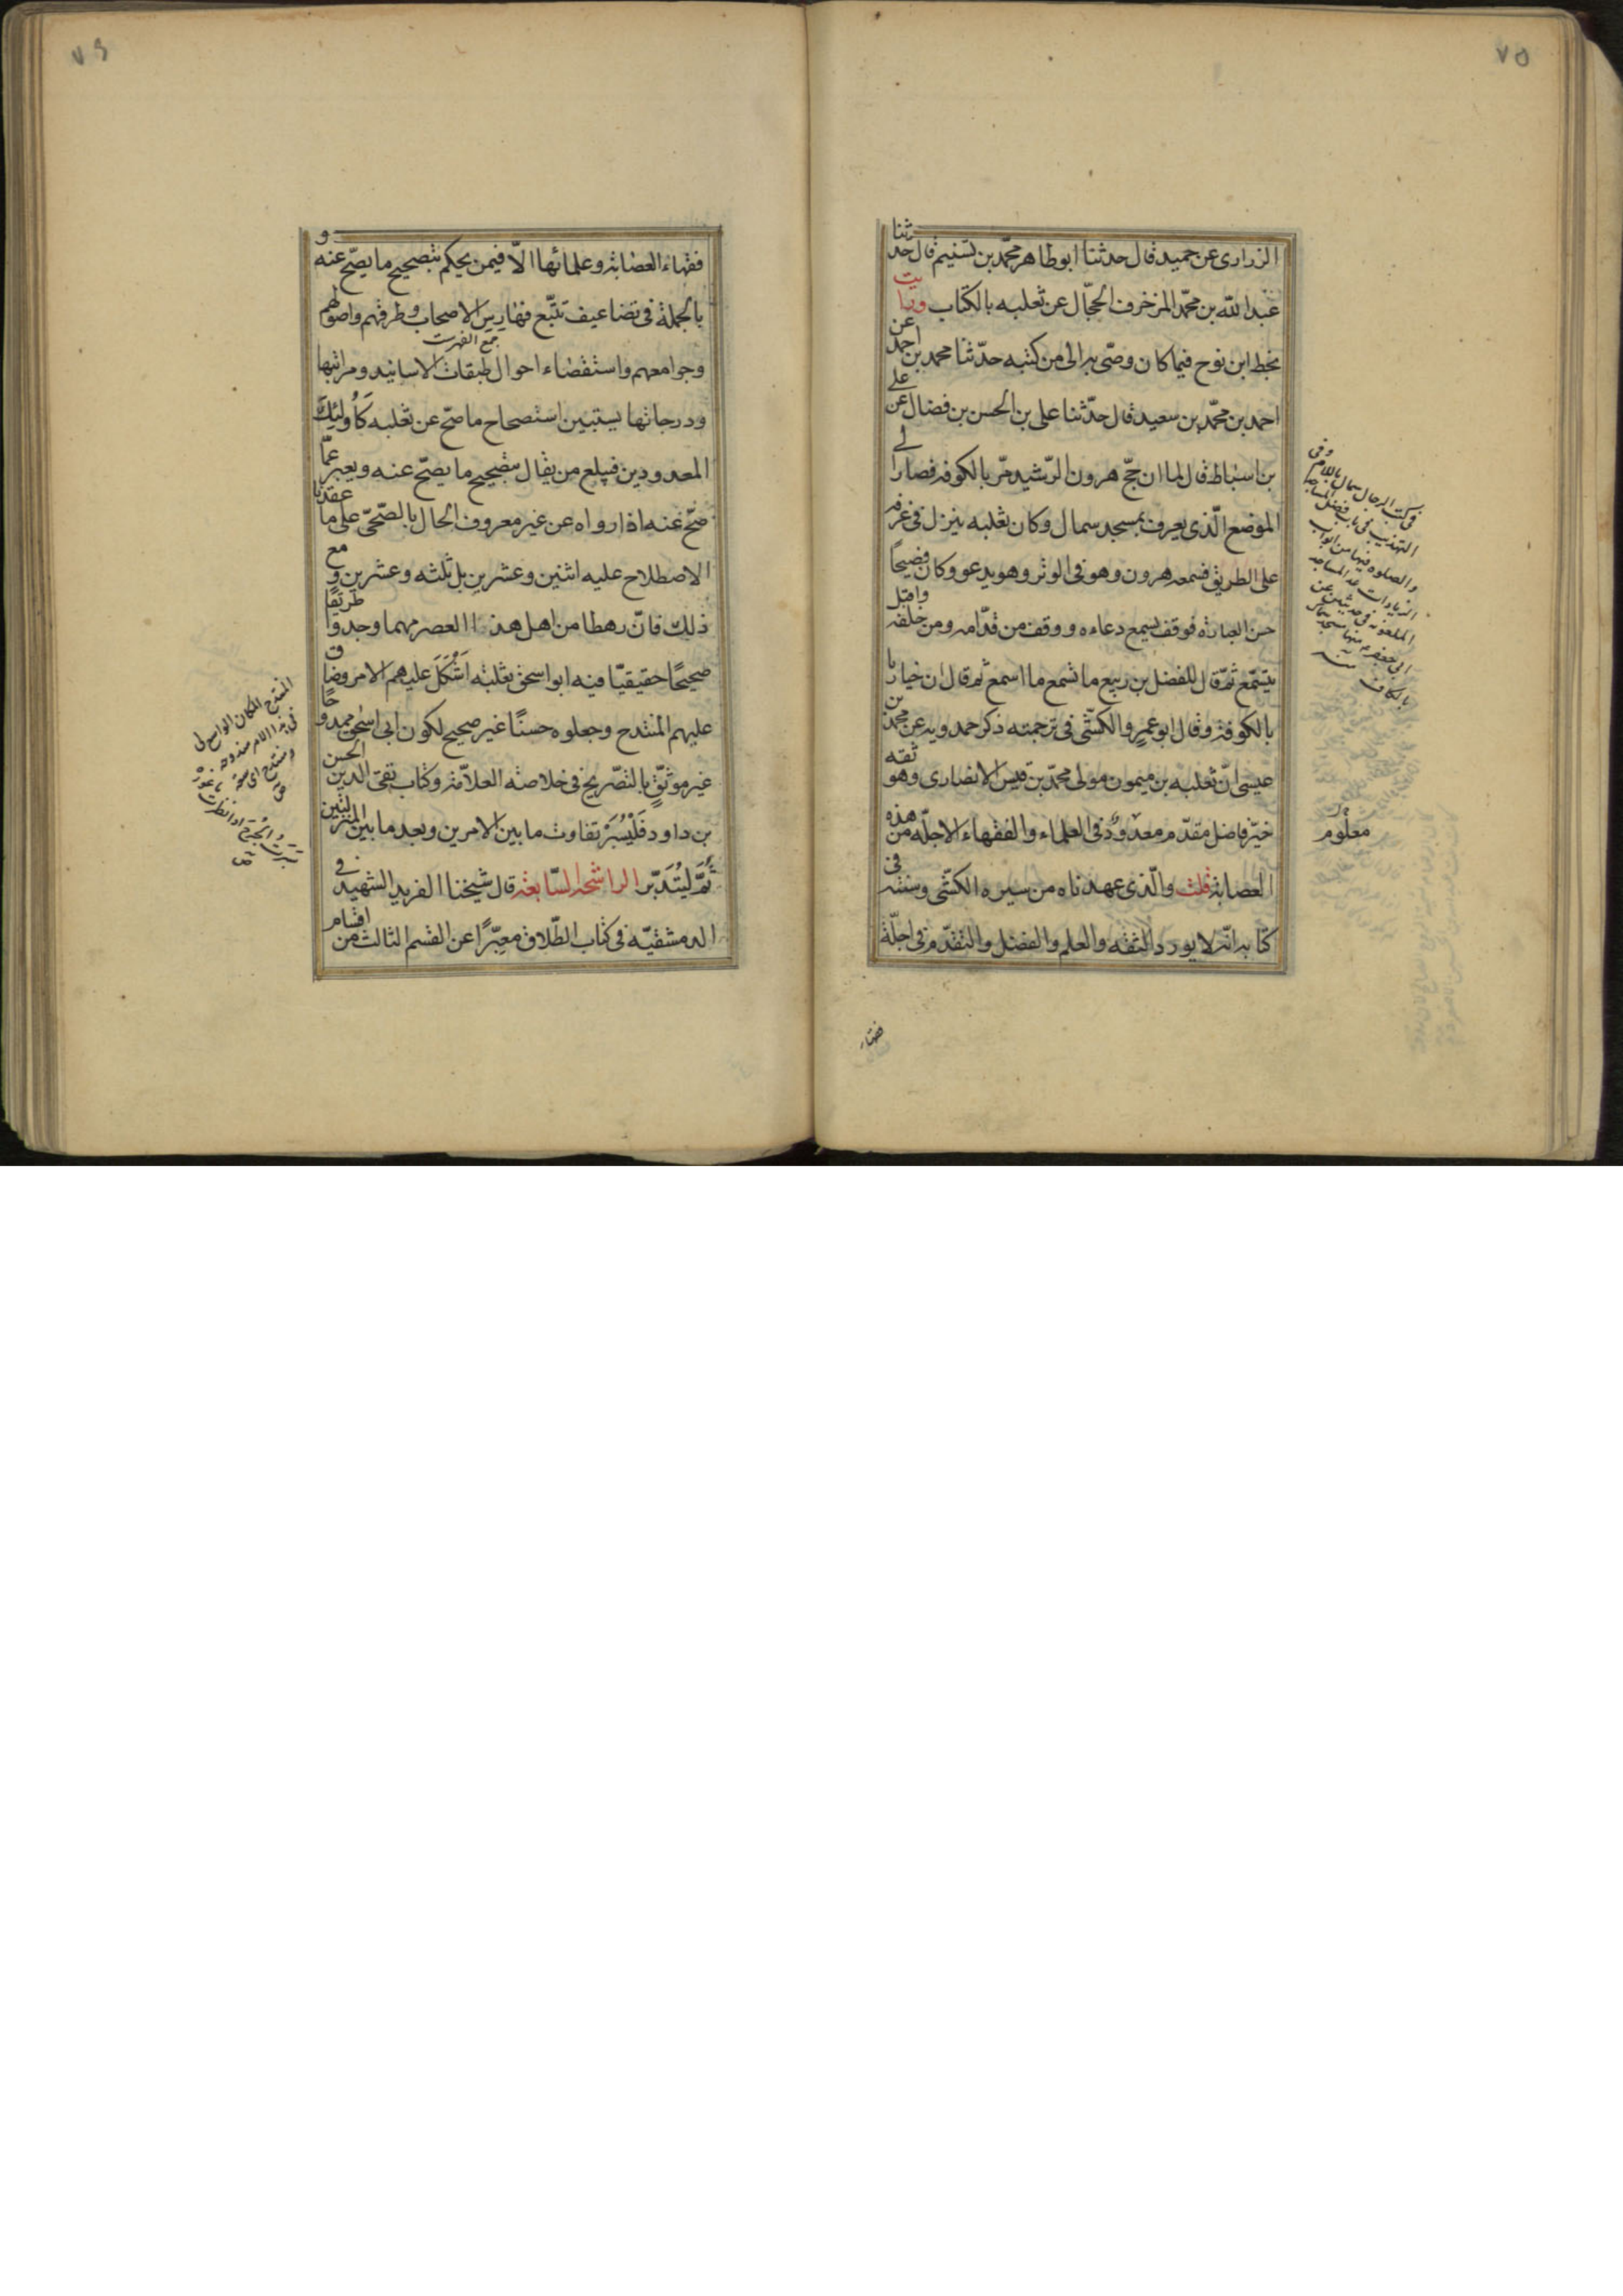 ٧٥
الزراری عن حمید قال حدثنا ابو طاهر محمّد بن تسنیم قال حدثنا
عبد اللّه بن محمّد المزخرف الحجّال عن ثعلبه بالکتاب ورایت
بخط ابن نوح فیما کان وصّی به الی من کتبه حدّثنا محمد بن احمد عن
احمد بن محمّد بن سعید قال حدّثنا علی بن الحسن بن فضال عن علی
بن اسباط قال لما ان حجّ هرون الرّشید مرّ بالکوفه فصار الی
الموضع الّذی یعرف بمسجد سمال وکان ثعلبه ینزل فی غرفه
علی الطریق فسمعه هرون وهو فی الوتر وهو یدعو وکان فصیحاً
حسن العباره فوقف یسمع دعاءه ووقف من قدّامه ومن خلفه واقبل
یتسمّع ثمّ قال للفضل بن ربیع ما تسمع ما اسمع ثم قال ان خیارنا
بالکوفة وقال ابو عمرو الکشّی فی ترجمته ذکر حمدویه عن محمّد بن
عیسی انّ ثعلبه بن میمون مولی محمّد بن قیس الانصاری وهو ثقه
خیّر فاضل مقدّم معدود فی العلماء والفقهاء الاجلّه من هذه
العصابة قلت والّذی عهدناه من سیره الکشّی وسنته فی
کتابه انّه لا یورد الثقه والعلم والفضل والتقدّم فی اجلّة
فقهاء
فی کتب الرجال سمال باللام وفی
التهذیب فی باب فضل المساجد
والصلوه فیها من ابواب
الزیادات عد المساجد
الملعونه فی حدیثین عن
ابی جعفر ع منها مسجد سماک
بالکاف منه
معلوم
٧٦
فقهاء العصابة وعلمائها الاّ فیمن یحکم بتصحیح ما یصحّ عنه و
بالجملة فی تضاعیف تتبّع فهارس الاصحاب وطرقهم واصولهم
جمع الفهرست
وجوامعهم واستقصاء احوال طبقات الاسانید ومراتبها
ودرجاتها یستبین استصحاح ما صحّ عن ثعلبه کاُولئك
المعدودین فیبلغ من یقال بتصحیح ما یصحّ عنه ویعبر عمّا
صحّ عنه اذا رواه عن غیر معروف الحال بالصّحّیّ علی ما عقدنا
الاصطلاح علیه اثنین وعشرین بل ثلثه وعشرین و مع
ذلك فانّ رهطا من اهل هذا العصر مهما وجدوا طریقا
صحیحًا حقیقیّا فیه ابو اسحق ثعلبه اَشْکَلَ علیهم الامر وضاق
علیهم المنتدح وجعلوه حسنًا غیر صحیح لکون ابی اسحق ممدوحًا
غیر موثّق بالتصریح فی خلاصه العلاّمة وکتاب تقی الدین الحسن
بن داود فَلْیُسْبَرْ تفاوت ما بین الامرین وبعد ما بین المنزلتین
ثُمَّ لْیُتَدَبّر الراشحة السّابعة قال شیخنا الفرید الشهید فی
الدمشقیّه فی کتاب الطّلاق معبّرًا عن القسم الثالث من اقسام
المنتدح المکان الواسع ولی